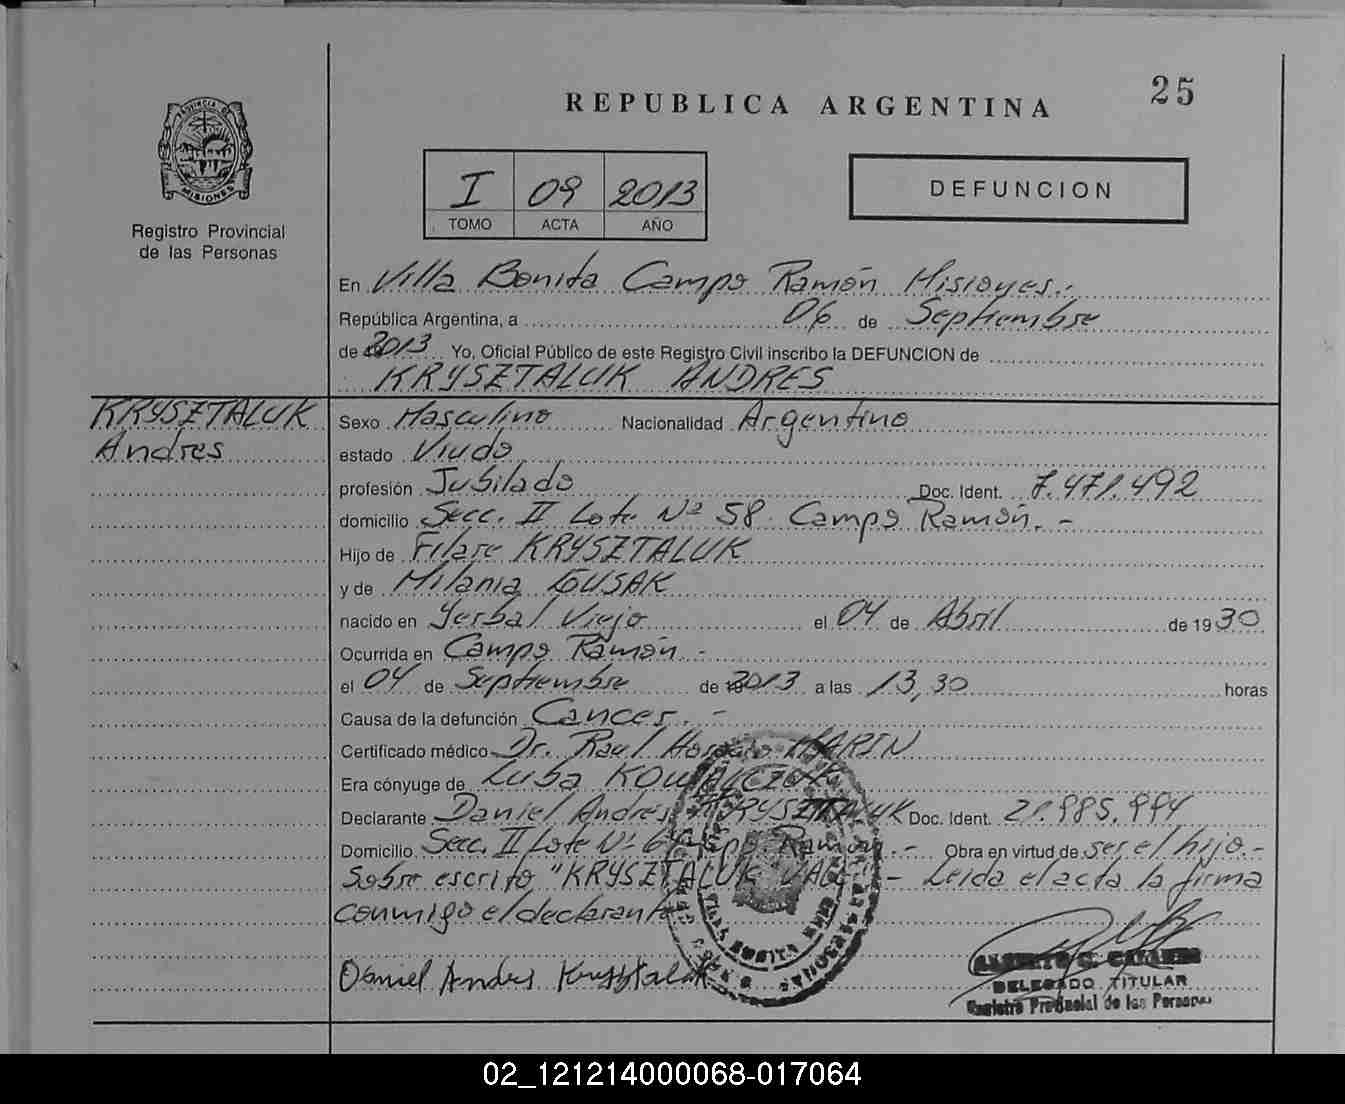 25
REPUBLICA ARGENTINA
PROVINCIA DE
MISIONES
Registro Provincial
de las Personas
I 09 2013
TOMO ACTA AÑO
DEFUNCION
En Villa Bonita Campo Ramón Misiones.-
República Argentina, a 06 de Septiembre
de 2013 Yo, Oficial Público de este Registro Civil inscribo la DEFUNCION de
KRYSZTALUK ANDRES
KRYSZTALUK
Andres
Sexo Masculino Nacionalidad Argentino
estado Viudo
profesión Jubilado Doc. Ident. 7.471.492
domicilio Secc. II Lote Nº 58 Campo Ramón.-
Hijo de Filare KRYSZTALUK
y de Milania GUSAK
nacido en Yerbal Viejo el 04 de Abril de 1930
Ocurrida en Campo Ramón -
el 04 de Septiembre de 2013 a las 13,30 horas
Causa de la defunción Cancer.-
Certificado médico Dr. Raul Horacio MARIN
Era cónyuge de Luba KOWALCZUK
Declarante Daniel Andres KRYSZTALUK Doc. Ident. 21.985.994
Domicilio Secc. II Lote Nº Ramón.- Obra en virtud de ser el hijo.-
Sobre escrito "KRYSZTALUK" VALE.- Leida el acta la firma
conmigo el declarante
Daniel Andres Krysztaluk
DELEGADO TITULAR
Registro Provincial de las Personas
02_121214000068-017064